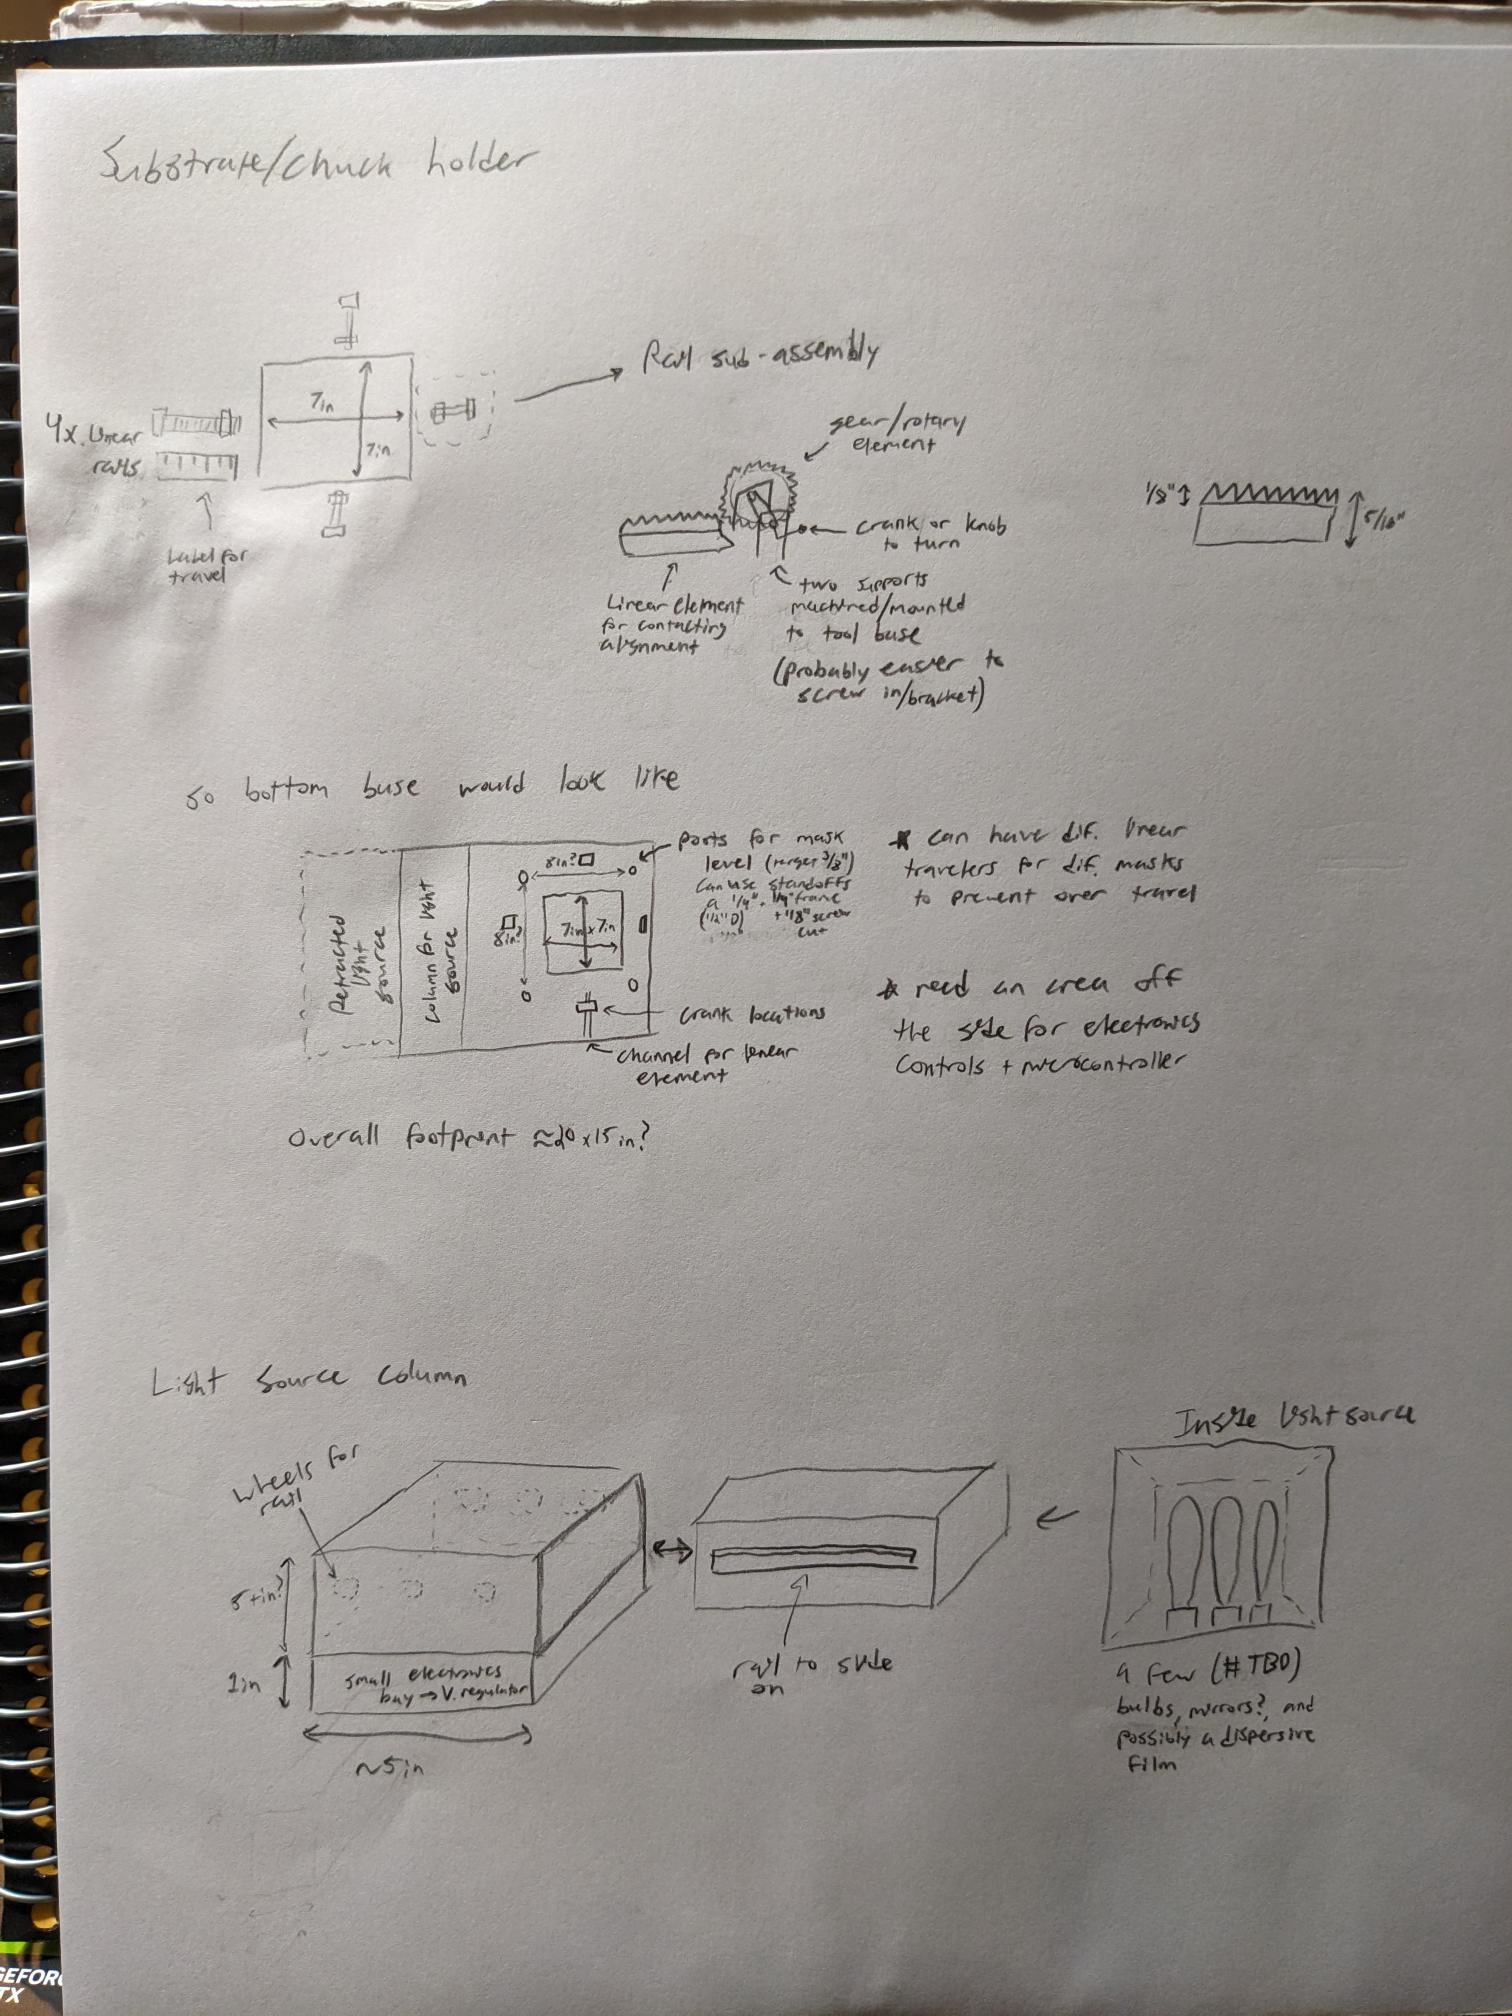 Substrate/chuck holder
7in
7in
4x. Linear
rails
Label for
travel
Rail sub-assembly
gear/rotary
element
crank or knob
to turn
Linear element
for contacting
alignment
two supports
machined/mounted
to tool base
(probably easier to
screw in/bracket)
1/8"
5/16"
So bottom base would look like
Retracted
light
source
Column for light
source
8in?
8in?
7in x 7in
ports for mask
level
can use standoffs
a 1/4"
frame
(1/2" D)
+ 1/8" screw
cut
crank locations
channel for linear
element
* can have dif. linear
travelers for dif. masks
to prevent over travel
* need an area off
the side for electronics
controls + microcontroller
Overall footprint ≈20 x 15 in?
Light source column
wheels for
rail
5+in?
1in
small electronics
bay → V. regulator
~5in
rail to slide
on
Inside lightsource
a few (# TBD)
bulbs, mirrors?, and
possibly a dispersive
film
GEFOR
TX